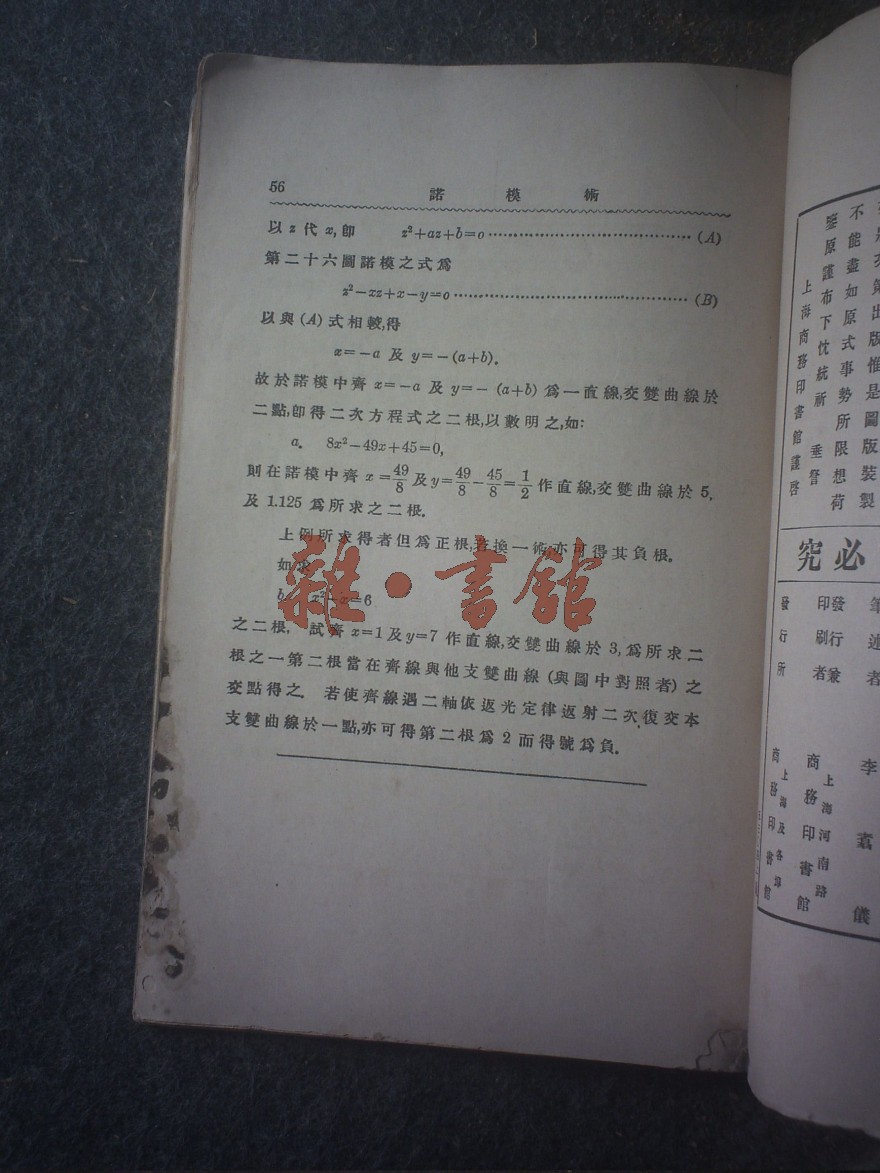 56 諾模術
以 z 代 x, 卽 z²+az+b=o ……………………………… (A)
第二十六圖諾模之式爲
z²−xz+x−y=o ……………………………… (B)
以與 (A) 式相較,得
x=−a 及 y=−(a+b).
故於諾模中齊 x=−a 及 y=− (a+b) 爲一直線,交雙曲線於
二點,卽得二次方程式之二根,以數明之,如:
a. 8x²−49x+45=0,
則在諾模中齊 x=49/8 及 y=49/8−45/8=1/2 作直線,交雙曲線於 5.
及 1.125 爲所求之二根.
上例所求得者但爲正根,若換一術,亦可得其負根.
如求
b. x²−x=6
之二根, 試齊 x=1 及 y=7 作直線,交雙曲線於 3,爲所求二
根之一第二根當在齊線與他支雙曲線 (與圖中對照者) 之
交點得之. 若使齊線遇二軸依返光定律返射二次復交本
支雙曲線於一點,亦可得第二根爲 2 而得號爲負.
雜·書館
第出版惟是圖版裝製
不能盡如原式事勢所限想荷
鑒原謹布下忱統祈 垂詧
上海商務印書館謹啓
必究
筆述者 李 儀
發行兼印刷者 上海河南路 商務印書館
發行所 上海及各埠 商務印書館